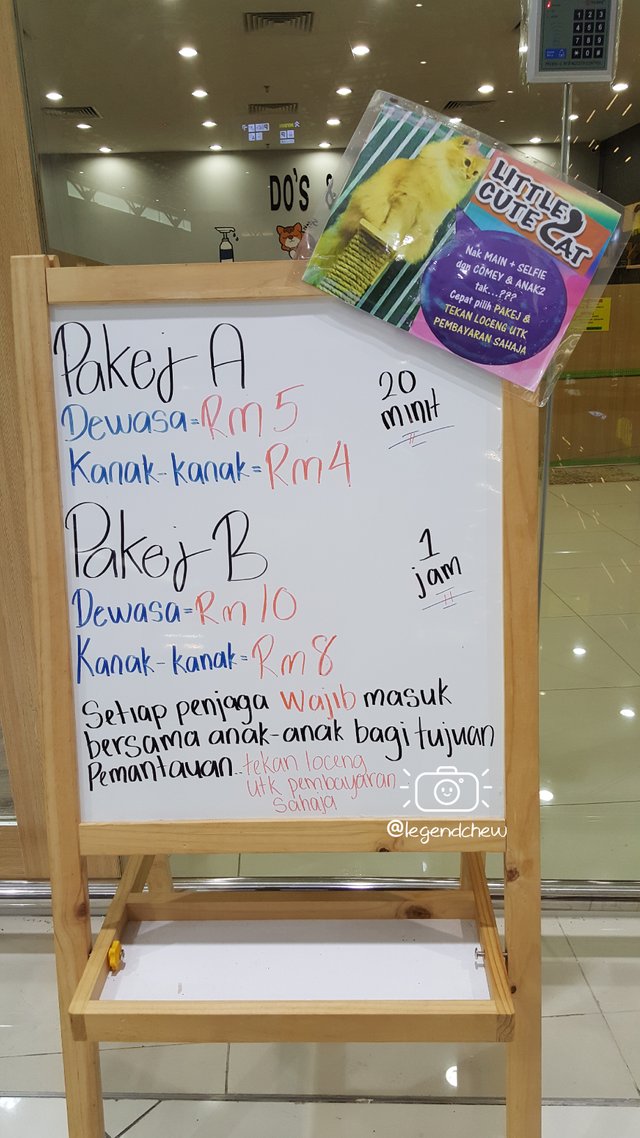 DO'S &
LITTLE
CUTE CAT
Nak MAIN + SELFIE
dan COMEY & ANAK2
tak...???
Cepat pilih PAKEJ &
TEKAN LOCENG UTK
PEMBAYARAN SAHAJA
Pakej A
20
minit
Dewasa = Rm 5
Kanak-kanak = Rm 4
Pakej B
1
jam
Dewasa = Rm 10
Kanak-kanak = Rm 8
Setiap penjaga Wajib masuk
bersama anak-anak bagi tujuan
Pemantauan.. tekan loceng
utk pembayaran
Sahaja
@legendchew